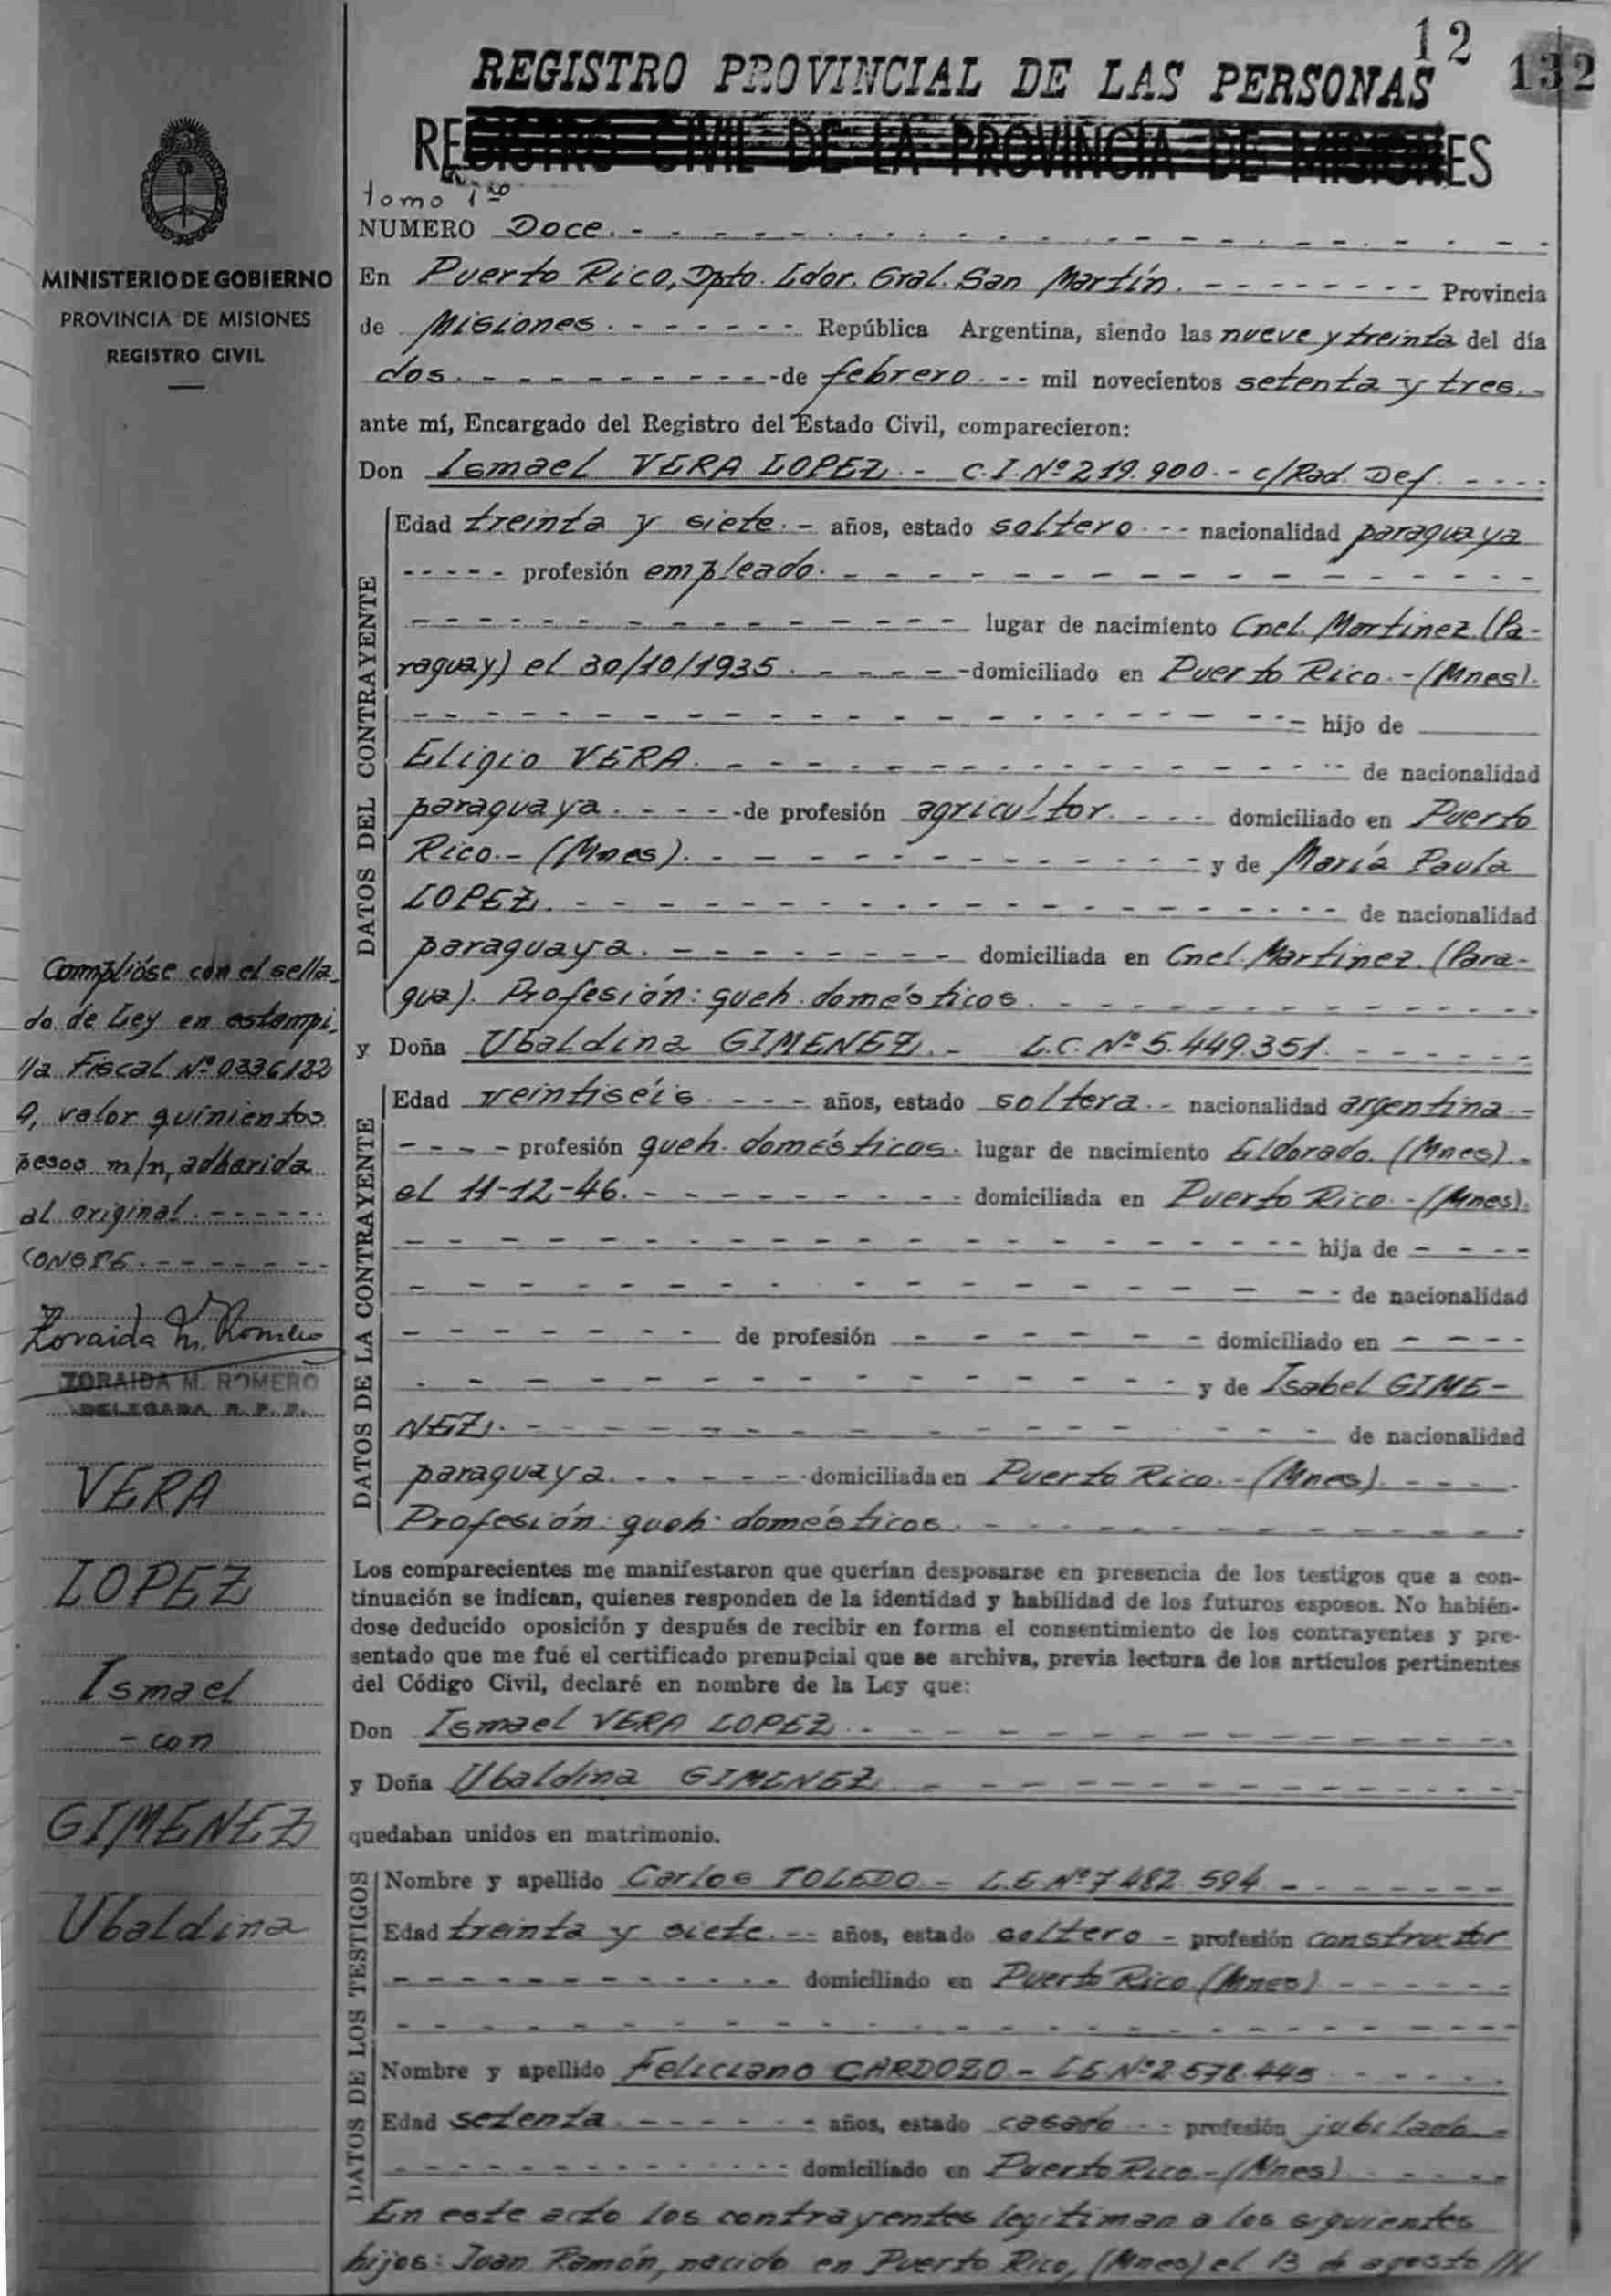 12
132
REGISTRO PROVINCIAL DE LAS PERSONAS
REGISTRO CIVIL DE LA PROVINCIA DE MISIONES
tomo 1º
NUMERO Doce. - - - - - - - -
En Puerto Rico, Dpto. Ldor. Gral. San Martín. - - - - - - - - Provincia
de Misiones. - - - - - - - República Argentina, siendo las nueve y treinta del día
dos. - - - - - - - - - - de febrero. - - mil novecientos setenta y tres. -
ante mí, Encargado del Registro del Estado Civil, comparecieron:
Don Ismael VERA LOPEZ. - C.I. Nº 219.900. - c/Rad. Def. - - - -
DATOS DEL CONTRAYENTE
Edad treinta y siete. - años, estado soltero. - - nacionalidad paraguaya
- - - - - profesión empleado. - - - - - - - -
- - - - - - - - lugar de nacimiento Cnel. Martinez (Pa-
raguay) el 30/10/1935. - - - - - domiciliado en Puerto Rico. - (Mnes).
- - - - - - - - hijo de
Eligio VERA. - - - - - - - - de nacionalidad
paraguaya. - - - - - de profesión agricultor. - - - domiciliado en Puerto
Rico. - (Mnes). - - - - - - - - y de María Paula
LOPEZ. - - - - - - - - de nacionalidad
paraguaya. - - - - - - - - domiciliada en Cnel. Martinez. (Para-
gua). Profesión: queh. domésticos. - - - - - - - -
y Doña Ubaldina GIMENEZ. - L.C. Nº 5.449.351. - - - - - -
DATOS DE LA CONTRAYENTE
Edad veintiséis. - - - - años, estado soltera. - nacionalidad argentina. -
- - - - profesión queh. domésticos. lugar de nacimiento Eldorado. (Mnes). -
el 11-12-46. - - - - - - - - domiciliada en Puerto Rico. - (Mnes).
- - - - - - - - hija de - - - -
- - - - - - - - de nacionalidad
- - - - - - - - de profesión - - - - - - domiciliado en - - - -
- - - - - - - - y de Isabel GIME-
NEZ. - - - - - - - - de nacionalidad
paraguaya. - - - - - - domiciliada en Puerto Rico. - (Mnes). - - - -
Profesión: queh. domésticos. - - - - - - - -
Los comparecientes me manifestaron que querían desposarse en presencia de los testigos que a con-
tinuación se indican, quienes responden de la identidad y habilidad de los futuros esposos. No habién-
dose deducido oposición y después de recibir en forma el consentimiento de los contrayentes y pre-
sentado que me fué el certificado prenupcial que se archiva, previa lectura de los artículos pertinentes
del Código Civil, declaré en nombre de la Ley que:
Don Ismael VERA LOPEZ. - - - - - - - -
y Doña Ubaldina GIMENEZ. - - - - - - - -
quedaban unidos en matrimonio.
DATOS DE LOS TESTIGOS
Nombre y apellido Carlos TOLEDO. - L.E. Nº 7.482.594. - - - - - - -
Edad treinta y siete. - - años, estado soltero - profesión constructor
- - - - - - - - domiciliado en Puerto Rico (Mnes) - - - - - -
- - - - - - - -
Nombre y apellido Feliciano CARDOZO - L.E. Nº 2.578.445 - - - - -
Edad setenta. - - - - - - años, estado casado - - profesión jubilado -
- - - - - - - - domiciliado en Puerto Rico. - (Mnes). - - - - -
En este acto los contrayentes legitiman a los siguientes
hijos: Juan Ramón, nacido en Puerto Rico, (Mnes) el 13 de agosto ///
MINISTERIO DE GOBIERNO
PROVINCIA DE MISIONES
REGISTRO CIVIL
Complióse con el sella-
do de Ley en estampi-
lla Fiscal Nº 0336132
9, valor quinientos
pesos m/n, adherida
al original. - - - - - -
CONSTE. - - - - - - -
Zoraida M. Romero
ZORAIDA M. ROMERO
DELEGADA R. P. P.
VERA
LOPEZ
Ismael
- con
GIMENEZ
Ubaldina